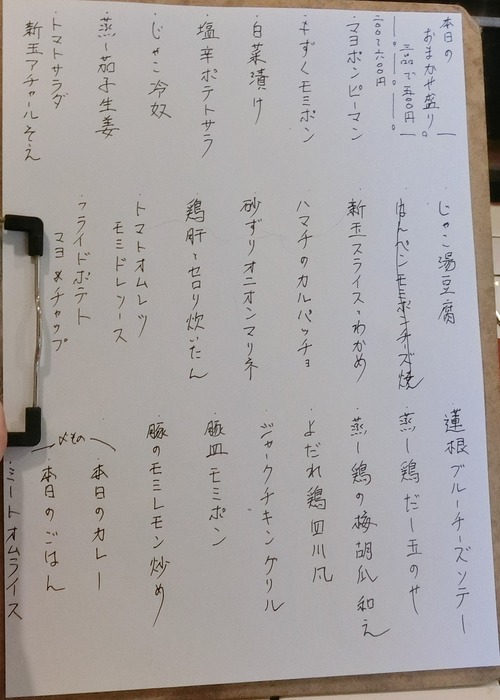 本日の
おまかせ盛り。
三品で五〇〇円
二〇〇〜六〇〇円
マヨポンピーマン
もずくモミポン
白菜漬け
塩辛ポテトサラ
じゃこ冷奴
蒸し茄子生姜
トマトサラダ
新玉アチャールそえ
じゃこ湯豆腐
はんぺんモミポンチーズ焼
新玉スライス・わかめ
ハマチのカルパッチョ
砂ずりオニオンマリネ
鶏肝とセロリ炊いたん
トマトオムレツ
モミドレソース
フライドポテト
マヨ&チャップ
蓮根ブルーチーズソテー
蒸し鶏だし玉のせ
蒸し鶏の梅胡瓜和え
よだれ鶏四川風
ジャークチキングリル
豚皿モミポン
豚のモミレモン炒め
〆もの
本日のカレー
本日のごはん
ミートオムライス